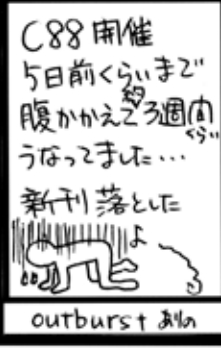 C88開催
5日前くらいまで
腹かかえて約3週間くらい
うなってました…
新刊落とした
よ
outburst ありの